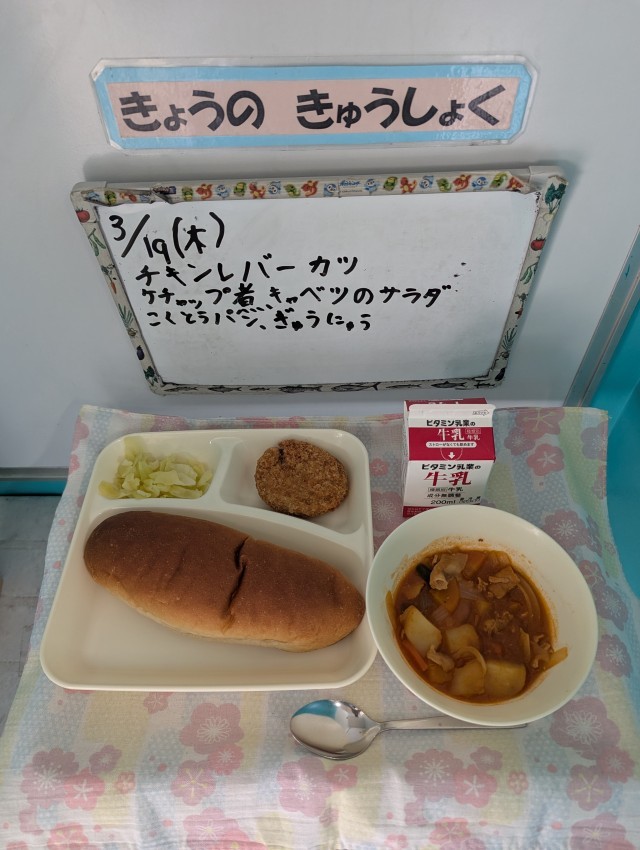 きょうの きゅうしょく
3/19(木)
チキンレバーカツ
ケチャップ煮、キャベツのサラダ
こくとうパン、ぎゅうにゅう
ビタミン乳業の
牛乳
ビタミン乳業の
牛乳
種類別 牛乳
成分無調整
200ml